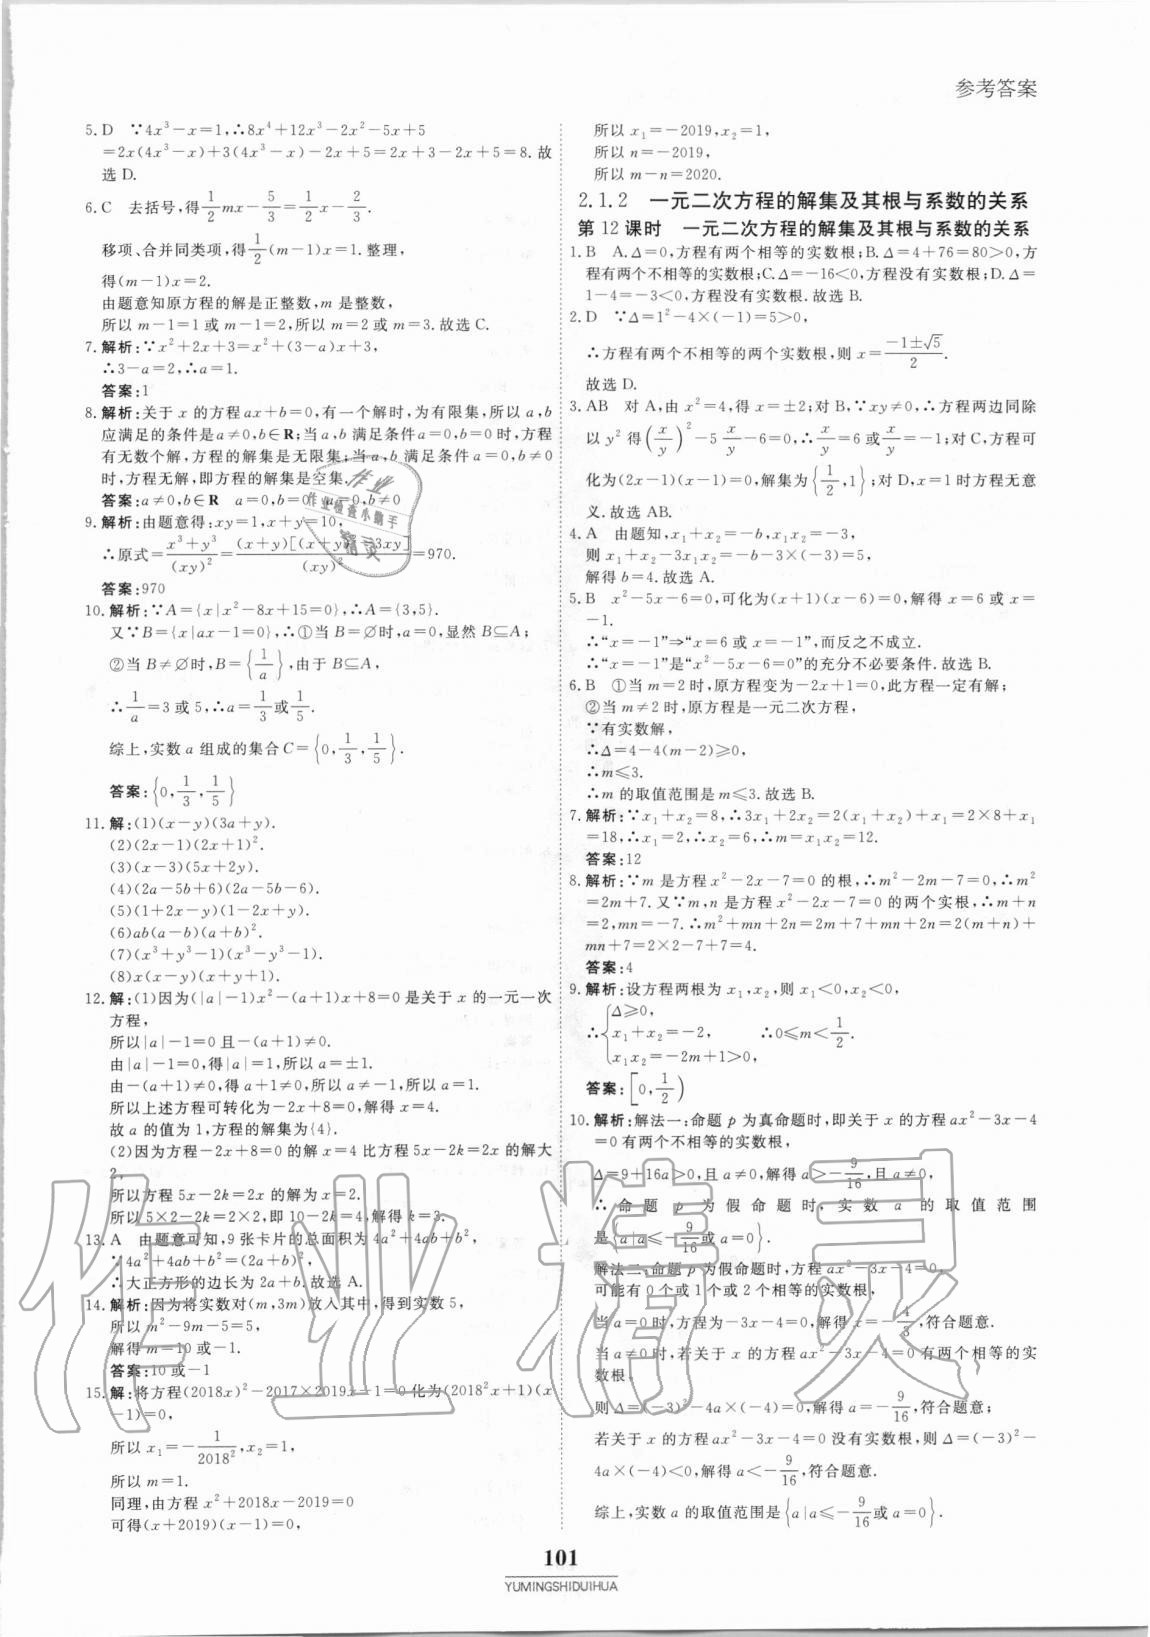 参考答案
5. D ∵4x³－x＝1,∴8x⁴＋12x³－2x²－5x＋5
＝2x(4x³－x)＋3(4x³－x)－2x＋5＝2x＋3－2x＋5＝8. 故
选 D.
6. C 去括号,得1/2mx－5/3＝1/2x－2/3.
移项、合并同类项,得1/2(m－1)x＝1.整理,
得(m－1)x＝2.
由题意知原方程的解是正整数,m 是整数,
所以 m－1＝1 或 m－1＝2,所以 m＝2 或 m＝3.故选 C.
7. 解析:∵x²＋2x＋3＝x²＋(3－a)x＋3,
∴3－a＝2,∴a＝1.
答案:1
8. 解析:关于 x 的方程 ax＋b＝0,有一个解时,为有限集,所以 a,b
应满足的条件是 a≠0,b∈R;当 a,b 满足条件 a＝0,b＝0 时,方程
有无数个解,方程的解集是无限集;当 a,b 满足条件 a＝0,b≠0
时,方程无解,即方程的解集是空集.
答案:a≠0,b∈R a＝0,b＝0 a＝0,b≠0
9. 解析:由题意得:xy＝1,x＋y＝10,
∴原式＝(x³＋y³)/(xy)²＝(x＋y)[(x＋y)²－3xy]/(xy)²＝970.
答案:970
10. 解析:∵A＝{x|x²－8x＋15＝0},∴A＝{3,5}.
又∵B＝{x|ax－1＝0},∴①当 B＝∅时,a＝0,显然 B⊆A;
②当 B≠∅时,B＝{1/a},由于 B⊆A,
∴1/a＝3 或 5,∴a＝1/3或1/5.
综上,实数 a 组成的集合 C＝{0,1/3,1/5}.
答案:{0,1/3,1/5}
11. 解:(1)(x－y)(3a＋y).
(2)(2x－1)(2x＋1)².
(3)(x－3)(5x＋2y).
(4)(2a－5b＋6)(2a－5b－6).
(5)(1＋2x－y)(1－2x＋y).
(6)ab(a－b)(a＋b)².
(7)(x³＋y³－1)(x³－y³－1).
(8)x(x－y)(x＋y＋1).
12. 解:(1)因为(|a|－1)x²－(a＋1)x＋8＝0 是关于 x 的一元一次
方程,
所以|a|－1＝0 且－(a＋1)≠0.
由|a|－1＝0,得|a|＝1,所以 a＝±1.
由－(a＋1)≠0,得 a＋1≠0,所以 a≠－1,所以 a＝1.
所以上述方程可转化为－2x＋8＝0,解得 x＝4.
故 a 的值为 1,方程的解集为{4}.
(2)因为方程－2x＋8＝0 的解 x＝4 比方程 5x－2k＝2x 的解大
2,
所以方程 5x－2k＝2x 的解为 x＝2.
所以 5×2－2k＝2×2,即 10－2k＝4,解得 k＝3.
13. A 由题意可知,9 张卡片的总面积为 4a²＋4ab＋b²,
∵4a²＋4ab＋b²＝(2a＋b)²,
∴大正方形的边长为 2a＋b.故选 A.
14. 解析:因为将实数对(m,3m)放入其中,得到实数 5,
所以 m²－9m－5＝5,
解得 m＝10 或－1.
答案:10 或－1
15. 解:将方程(2018x)²－2017×2019x－1＝0 化为(2018²x＋1)(x
－1)＝0,
所以 x₁＝－1/2018²,x₂＝1,
所以 m＝1.
同理,由方程 x²＋2018x－2019＝0
可得(x＋2019)(x－1)＝0,
所以 x₁＝－2019,x₂＝1,
所以 n＝－2019,
所以 m－n＝2020.
2.1.2 一元二次方程的解集及其根与系数的关系
第 12 课时 一元二次方程的解集及其根与系数的关系
1. B A.Δ＝0,方程有两个相等的实数根;B.Δ＝4＋76＝80＞0,方
程有两个不相等的实数根;C.Δ＝－16＜0,方程没有实数根;D.Δ＝
1－4＝－3＜0,方程没有实数根.故选 B.
2. D ∵Δ＝1²－4×(－1)＝5＞0,
∴方程有两个不相等的两个实数根,则 x＝(－1±√5)/2.
故选 D.
3. AB 对 A,由 x²＝4,得 x＝±2;对 B,∵xy≠0,∴方程两边同除
以 y² 得(x/y)²－5x/y－6＝0,∴x/y＝6或x/y＝－1;对 C,方程可
化为(2x－1)(x－1)＝0,解集为{1/2,1};对 D,x＝1 时方程无意
义.故选 AB.
4. A 由题知,x₁＋x₂＝－b,x₁x₂＝－3,
则 x₁＋x₂－3x₁x₂＝－b－3×(－3)＝5,
解得 b＝4.故选 A.
5. B x²－5x－6＝0,可化为(x＋1)(x－6)＝0,解得 x＝6 或 x＝
－1.
∴“x＝－1”⇒“x＝6 或 x＝－1”,而反之不成立.
∴“x＝－1”是“x²－5x－6＝0”的充分不必要条件.故选 B.
6. B ①当 m＝2 时,原方程变为－2x＋1＝0,此方程一定有解;
②当 m≠2 时,原方程是一元二次方程,
∵有实数解,
∴Δ＝4－4(m－2)≥0,
∴m≤3.
∴m 的取值范围是 m≤3.故选 B.
7. 解析:∵x₁＋x₂＝8,∴3x₁＋2x₂＝2(x₁＋x₂)＋x₁＝2×8＋x₁
＝18,∴x₁＝2,∴x₂＝6,∴m＝x₁x₂＝12.
答案:12
8. 解析:∵m 是方程 x²－2x－7＝0 的根,∴m²－2m－7＝0,∴m²
＝2m＋7. 又∵m,n 是方程 x²－2x－7＝0 的两个实根,∴m＋n
＝2,mn＝－7.∴m²＋mn＋2n＝2m＋7＋mn＋2n＝2(m＋n)＋
mn＋7＝2×2－7＋7＝4.
答案:4
9. 解析:设方程两根为 x₁,x₂,则 x₁＜0,x₂＜0,
∴{Δ≥0,
x₁＋x₂＝－2, ∴0≤m＜1/2.
x₁x₂＝－2m＋1＞0,
答案:[0,1/2)
10. 解析:解法一:命题 p 为真命题时,即关于 x 的方程 ax²－3x－4
＝0 有两个不相等的实数根,
Δ＝9＋16a＞0,且 a≠0,解得 a＞－9/16,且 a≠0,
∴命题 p 为假命题时,实数 a 的取值范围
是{a|a≤－9/16或 a＝0}.
解法二:命题 p 为假命题时,方程 ax²－3x－4＝0,
可能有 0 个或 1 个或 2 个相等的实数根,
当 a＝0 时,方程为－3x－4＝0,解得 x＝－4/3,符合题意.
当 a≠0 时,若关于 x 的方程 ax²－3x－4＝0 有两个相等的实
数根,
则 Δ＝(－3)²－4a×(－4)＝0,解得 a＝－9/16,符合题意;
若关于 x 的方程 ax²－3x－4＝0 没有实数根,则 Δ＝(－3)²－
4a×(－4)＜0,解得 a＜－9/16,符合题意.
综上,实数 a 的取值范围是{a|a≤－9/16或 a＝0}.
作业
作业检查小助手
精灵
作业精灵
101
YUMINGSHIDUIHUA